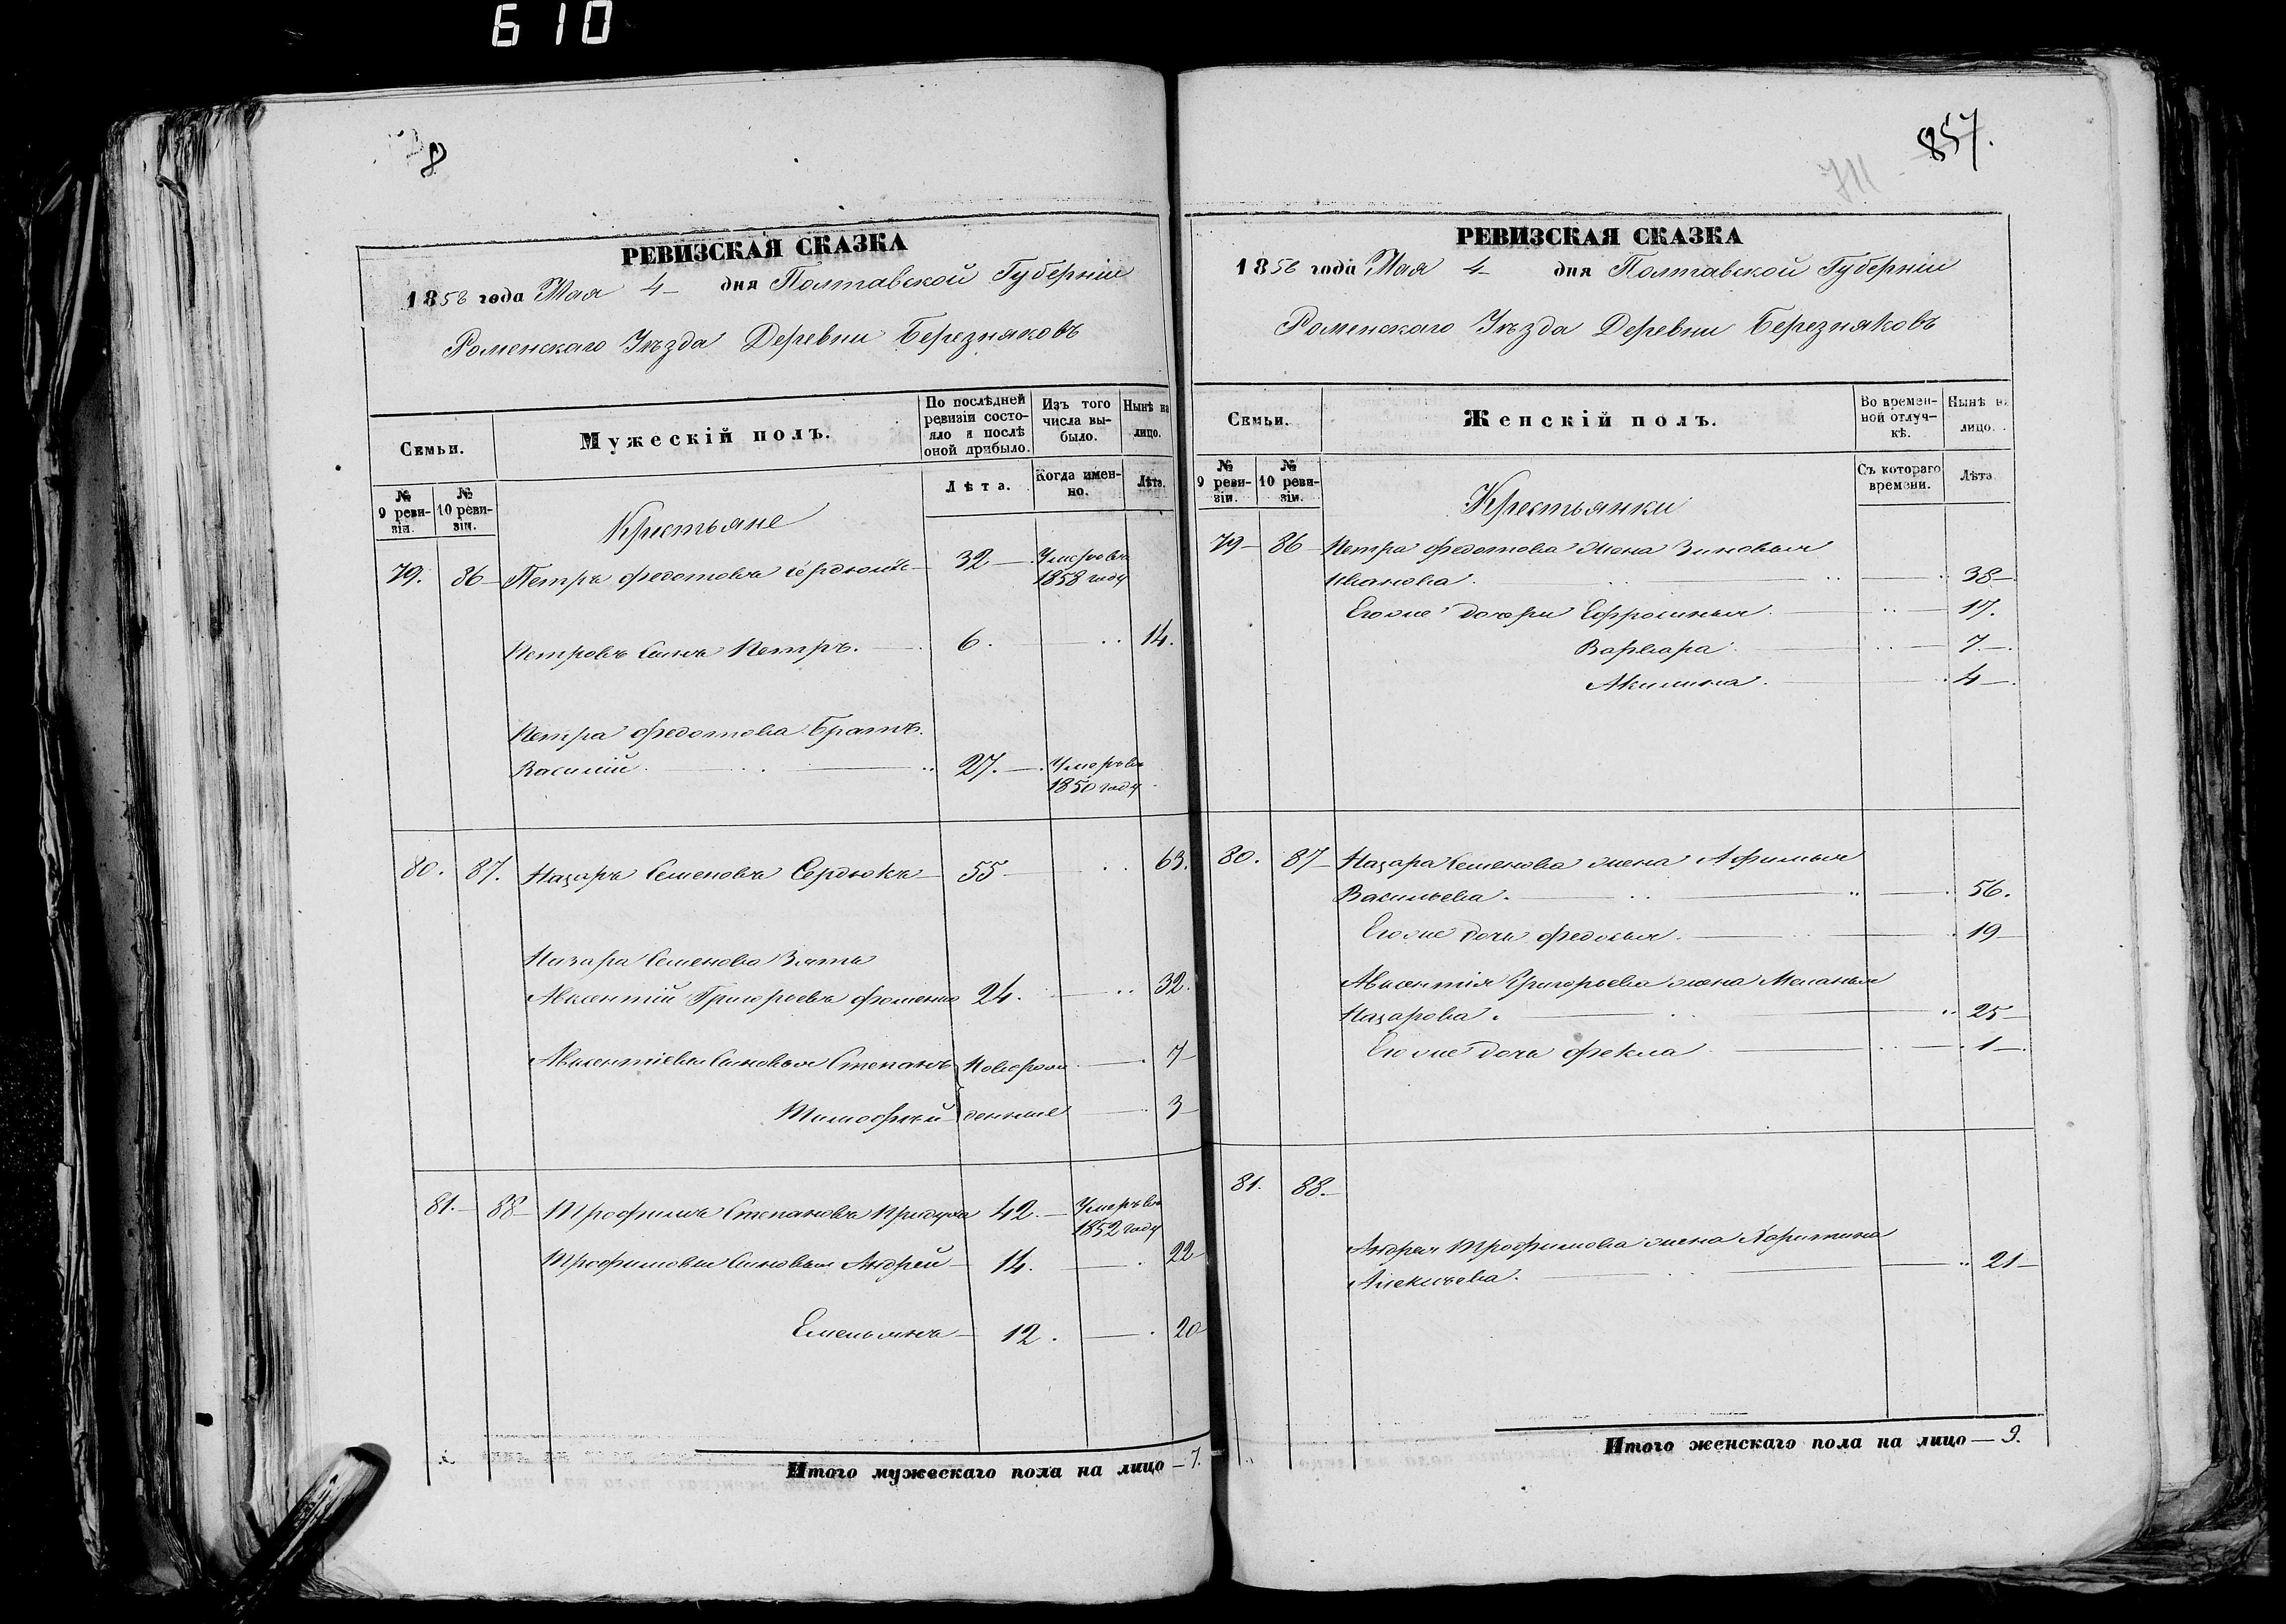 610
8
РЕВИЗСКАЯ СКАЗКА
1858 года Мая 4 дня Полтавской Губерніи
Роменскаго Уѣзда Деревни Березняковъ
Семьи.
Мужескій полъ.
По послѣдней ревизіи состояло и послѣ оной прибыло.
Изъ того числа выбыло.
Нынѣ на лицо.
№ 9 ревизіи.
№ 10 ревизіи.
Лѣта.
Когда именно.
Лѣта.
Крестьяне
79. 86 Петръ Федотовъ Сердюкъ 32 Умеръ въ 1858 году
Петровъ Сынъ Петръ. 6. 14.
Петра Федотова Братъ
Василій 27. Умеръ въ 1850 году
80. 87. Назаръ Семеновъ Сердюкъ 55 63.
Назара Семенова Зять
Авксентій Григорьевъ Фоменко 24. 32.
Авксентіевы Сыновья Степанъ Новорож 7
Тимофей денные 3
81. 88 Трофимъ Степановъ Придуха 42. Умеръ въ 1852 году
Трофимовы Сыновья Андрей 14. 22
Емельянъ 12. 20
Итого мужескаго пола на лицо 7.
857.
711
РЕВИЗСКАЯ СКАЗКА
1858 года Мая 4 дня Полтавской Губерніи
Роменскаго Уѣзда Деревни Березняковъ
Семьи.
Женскій полъ.
Во временной отлучкѣ.
Нынѣ на лицо.
№ 9 ревизіи.
№ 10 ревизіи.
Съ котораго времени.
Лѣта
Крестьянки
79 86 Петра Федотова жена Зиновья
Иванова. 38
Его же дочери Ефросинья 17.
Варвара 7.
Акилина. 4
80. 87 Назара Семенова жена Афимья
Васильева. 56.
Его же дочь Федосья 19
Авксентія Григорьева жена Меланья
Назарова. 25
Его же дочь Фекла 1
81. 88.
Андрея Трофимова жена Харитина
Алексѣева. 21
Итого женскаго пола на лицо 9.